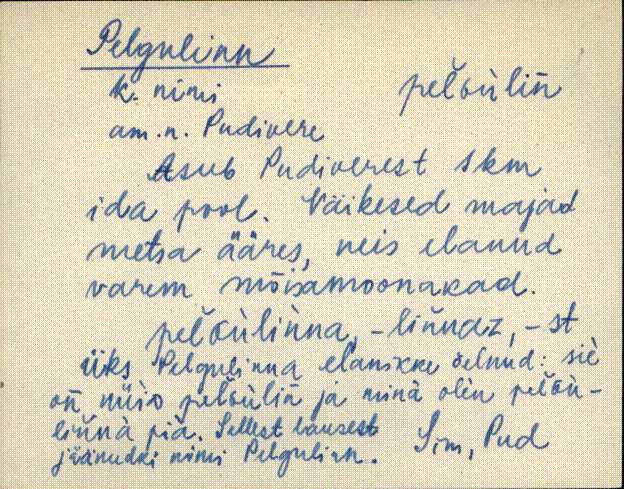 Pelgulinn
k. nimi pel̆ɢùlin̄
am. n. Pudivere
Asub Pudiverest 1km
ida pool. Väikesed majad
metsa ääres, neis elanud
varem mõisamoonakad.
pel̆ɢùlin̄na, -lin̄naz, -st
üks Pelgulinna elanikke öelnud: siè
on̄ nüiD pel̆ɢùlin̄ ja minà olèn pel̆ɢù-
lin̄nà piä. Sellest lausest
jäänudki nimi Pelgulinn. Sim, Pud